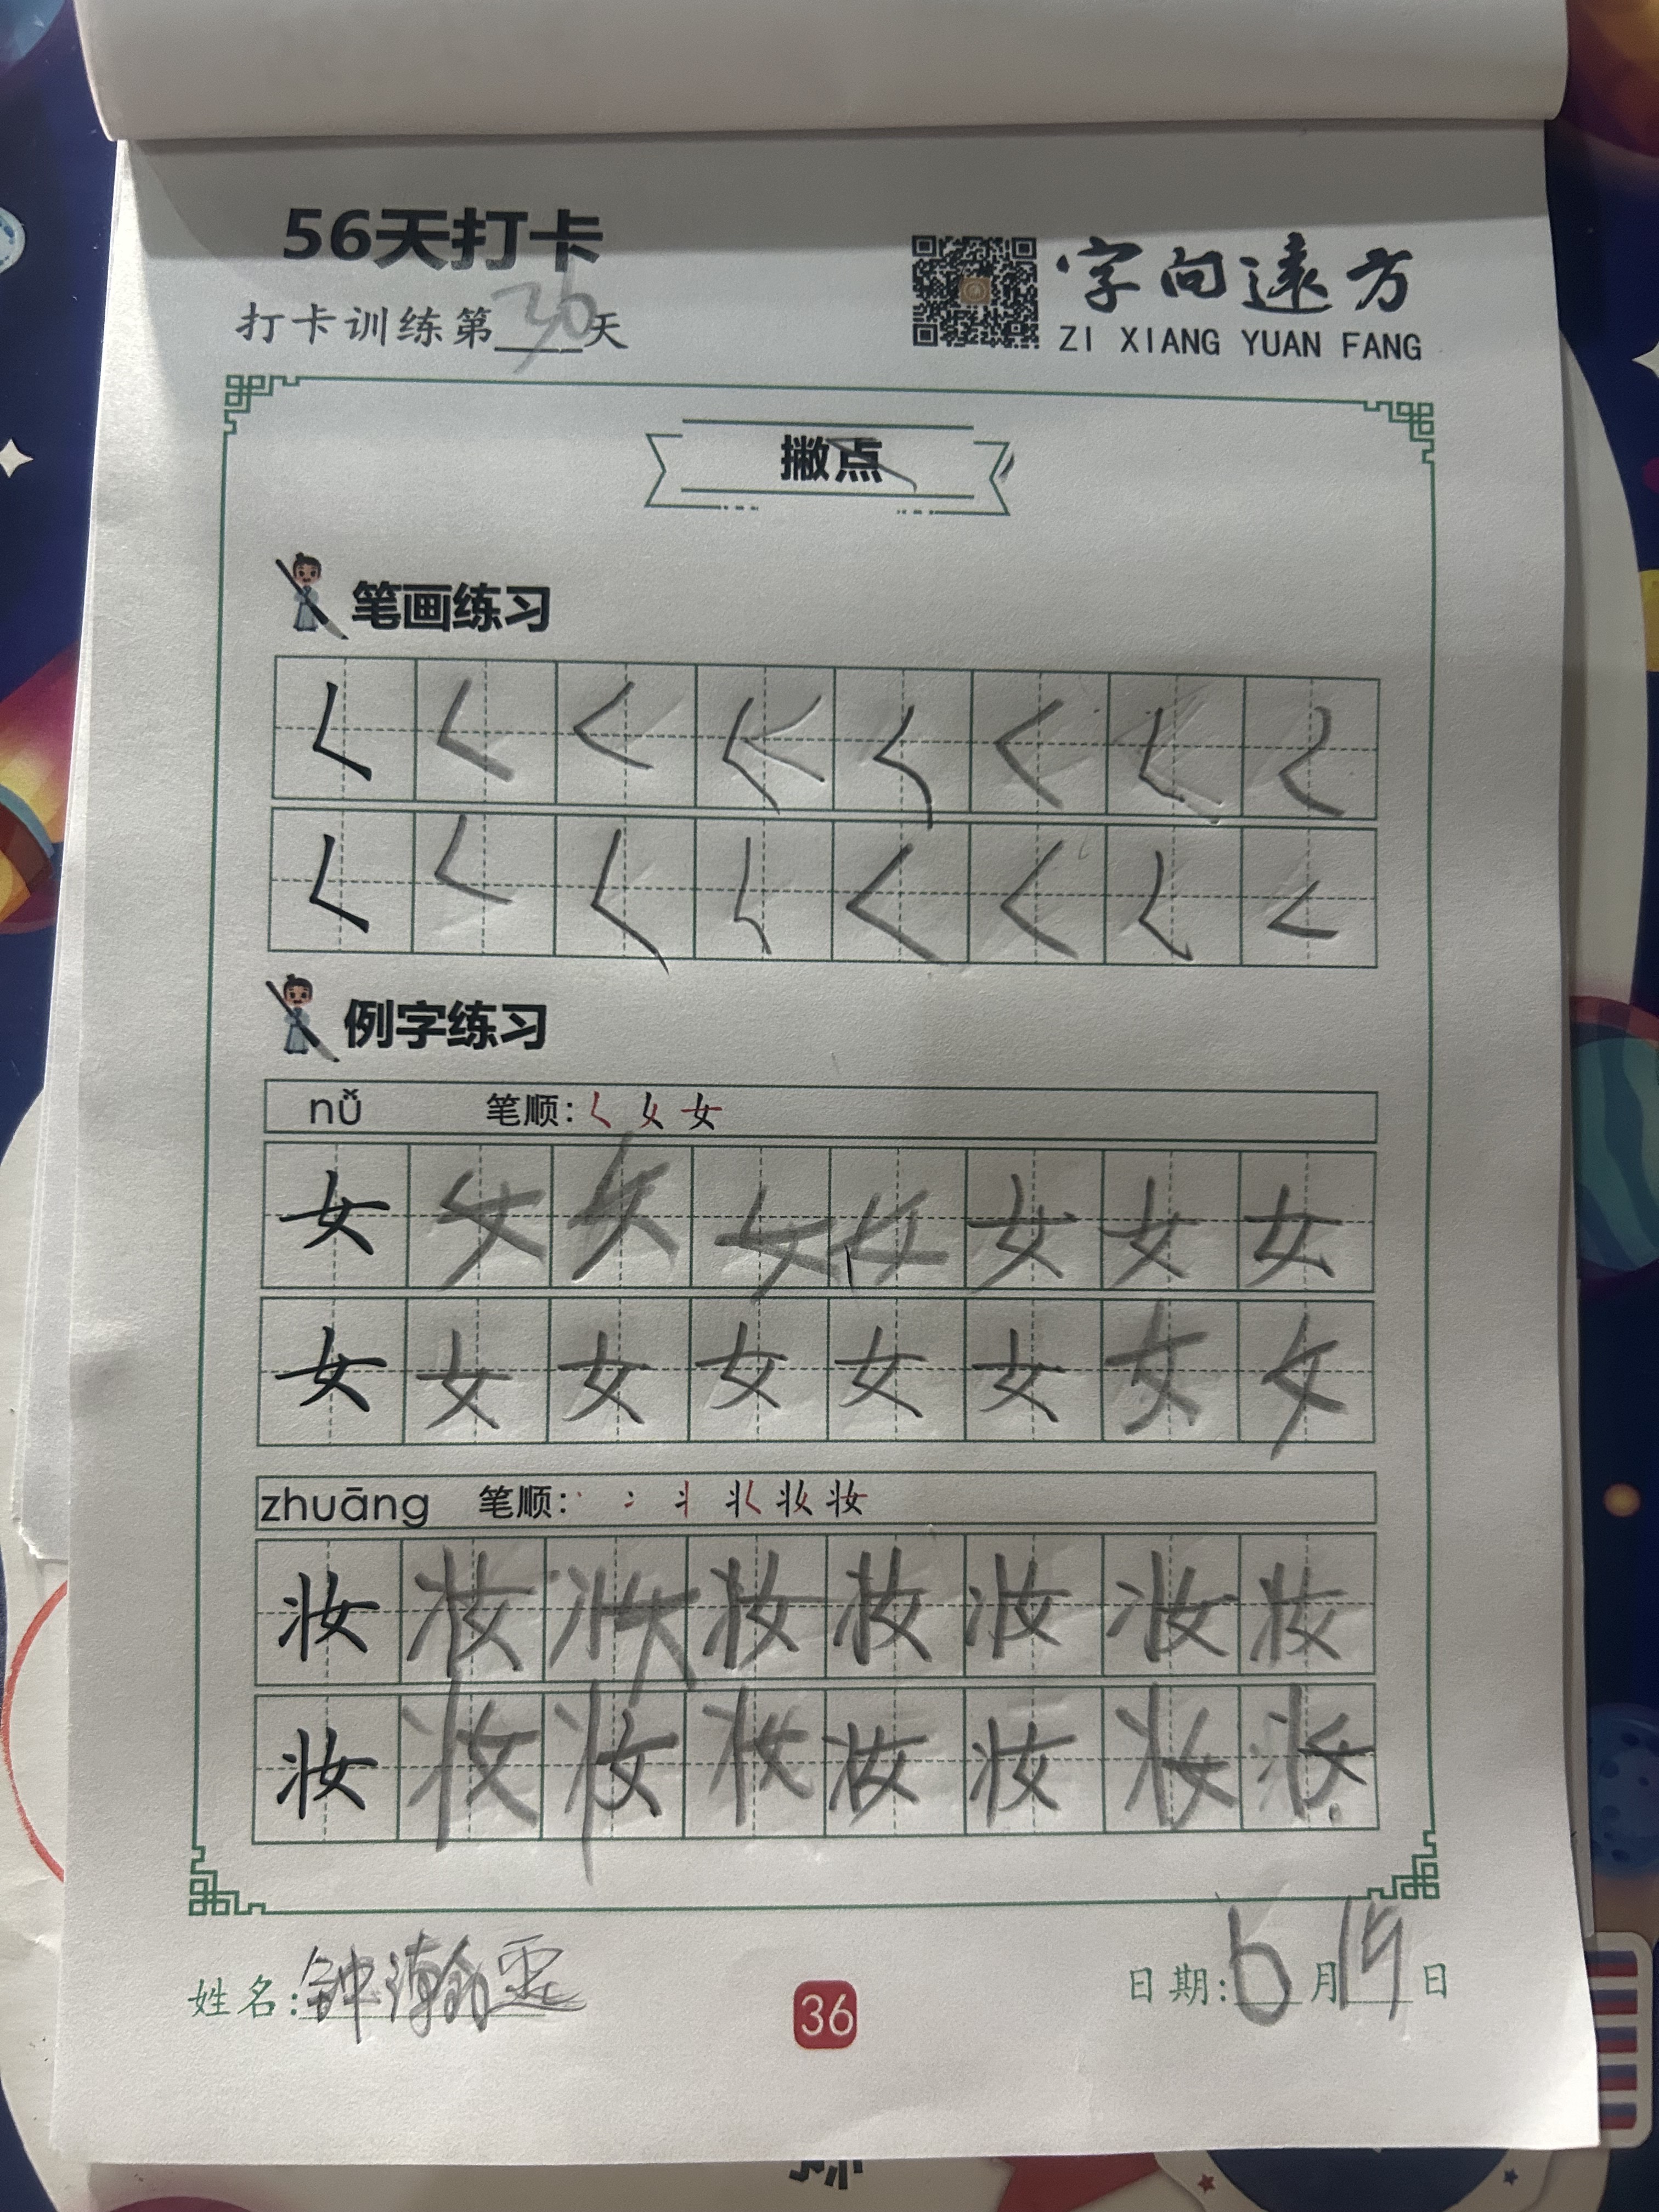 56天打卡
打卡训练第36天
字向遠方
ZI XIANG YUAN FANG
撇点
笔画练习
𡿨 𡿨 𡿨 𡿨 𡿨 𡿨 𡿨 𡿨
𡿨 𡿨 𡿨 𡿨 𡿨 𡿨 𡿨 𡿨
例字练习
nǚ 笔顺: 𡿨 女 女
女 女 女 女 女 女 女 女
女 女 女 女 女 女 女 女
zhuāng 笔顺: 妆
妆 妆 妆 妆 妆 妆 妆 妆
妆 妆 妆 妆 妆 妆 妆 妆
姓名: 钟瀚
36
日期: 6月19日